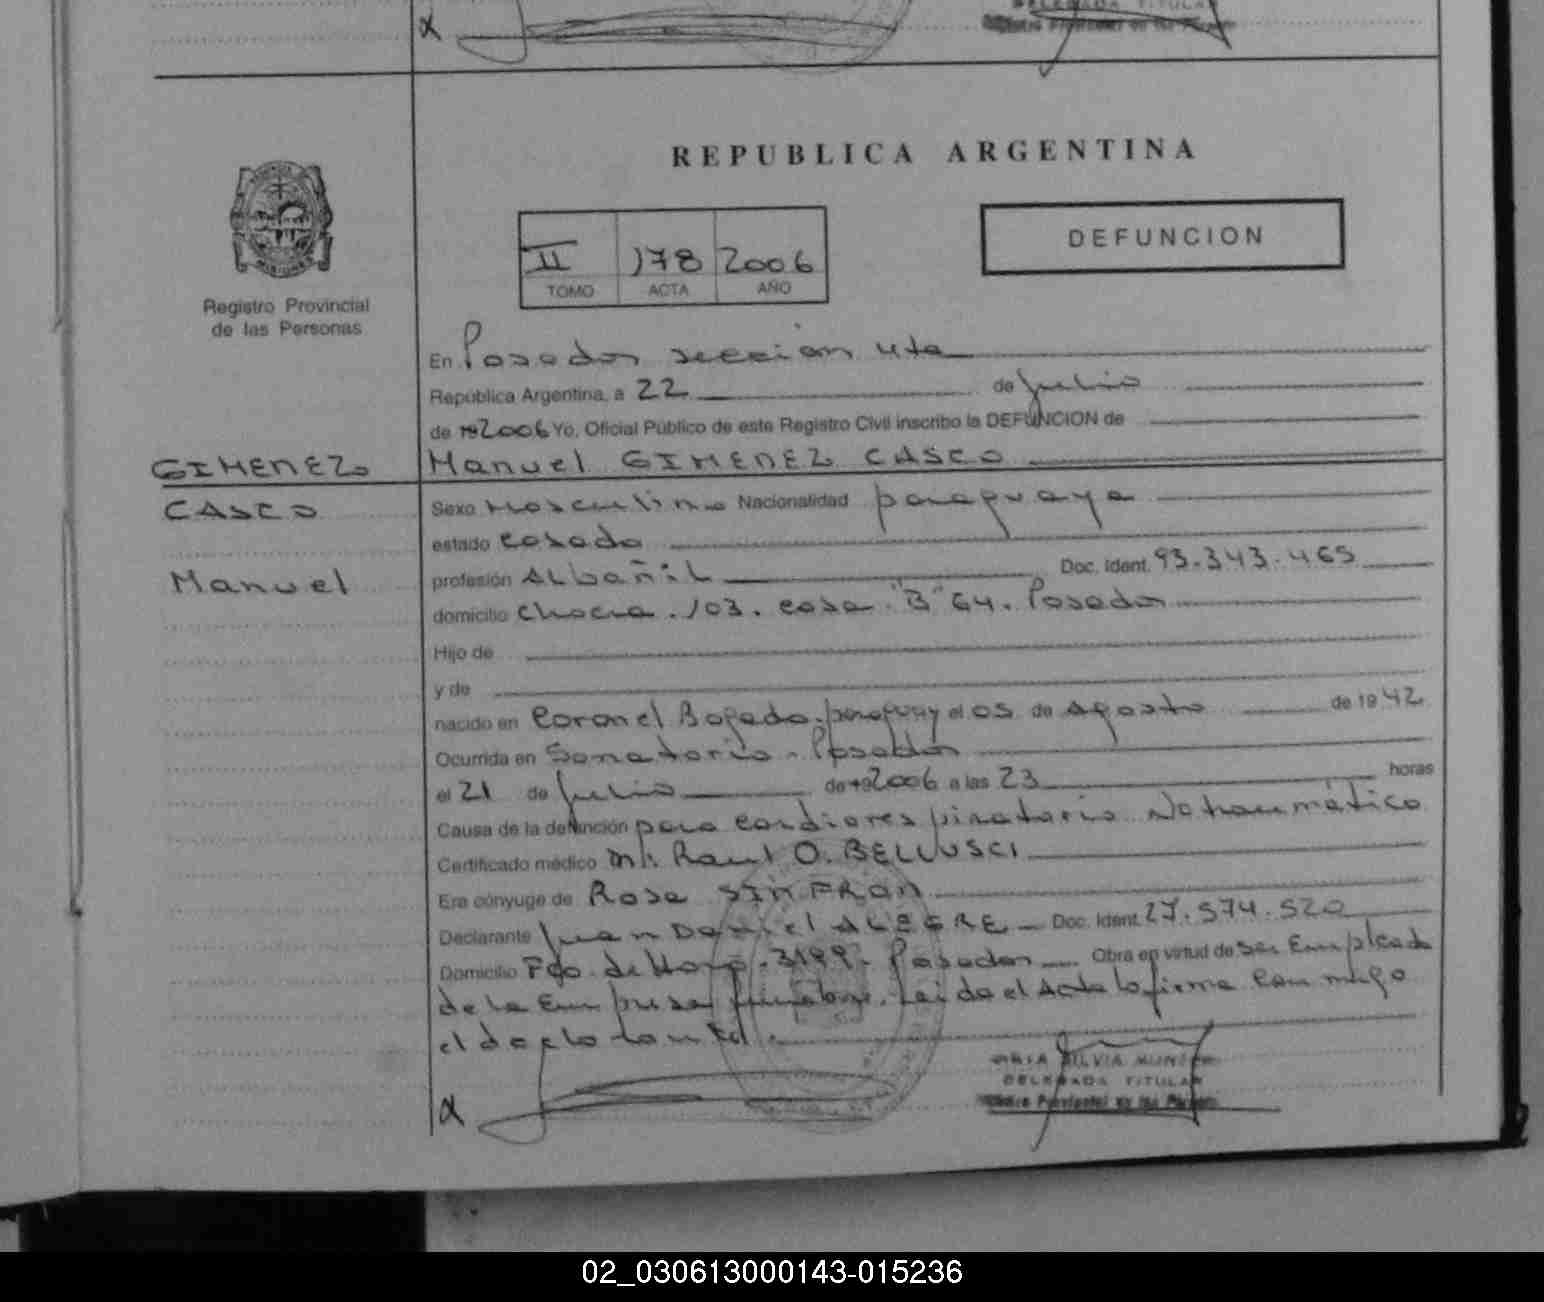 α
DELEGADA TITULAR
REPUBLICA ARGENTINA
II 178 2006
TOMO ACTA AÑO
DEFUNCION
Registro Provincial
de las Personas
En Posadas sección 4ta
República Argentina, a 22 de Julio
de 19 2006 Yo, Oficial Público de este Registro Civil inscribo la DEFUNCION de
GIMENEZ Manuel GIMENEZ CASCO
CASCO Sexo Masculino Nacionalidad paraguaya
estado casado
Manuel profesión Albañil Doc. Ident. 93.343.465
domicilio Chacra 103. casa "B" 64. Posadas
Hijo de
y de
nacido en Coronel Bogado. paraguay el 05 de Agosto de 19 42
Ocurrida en Sanatorio - Posadas
el 21 de Julio de 19 2006 a las 23 horas
Causa de la defunción paro cardiorespiratorio No traumático
Certificado médico Raul O. BELLUSCI
Era cónyuge de Rosa SINFRAN
Declarante Juan Daniel ALEGRE Doc. Ident. 27.574.520
Domicilio Fgo. de Haro. 3199. Posadas Obra en virtud de ser Empleado
de la Empresa funebre. Leida el Acta la firma conmigo
el declarante.
α
SILVIA
DELEGADA TITULAR
02_030613000143-015236